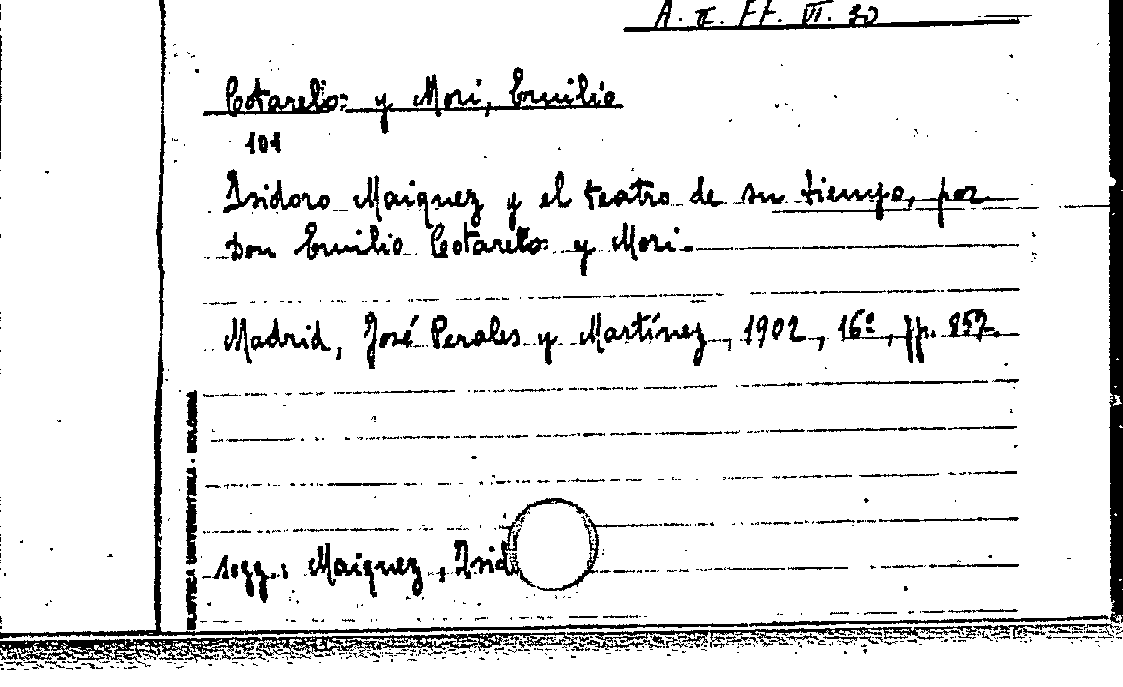 A. II. FF. VI. 30
Cotarelo y Mori, Emilio
101
Isidoro Maiquez y el teatro de su tiempo, por
Don Emilio Cotarelo y Mori.
Madrid, José Perales y Martínez, 1902, 16º, pp. 857.
BIBLIOTECA UNIVERSITARIA - BOLOGNA
sogg.: Maiquez, Isid